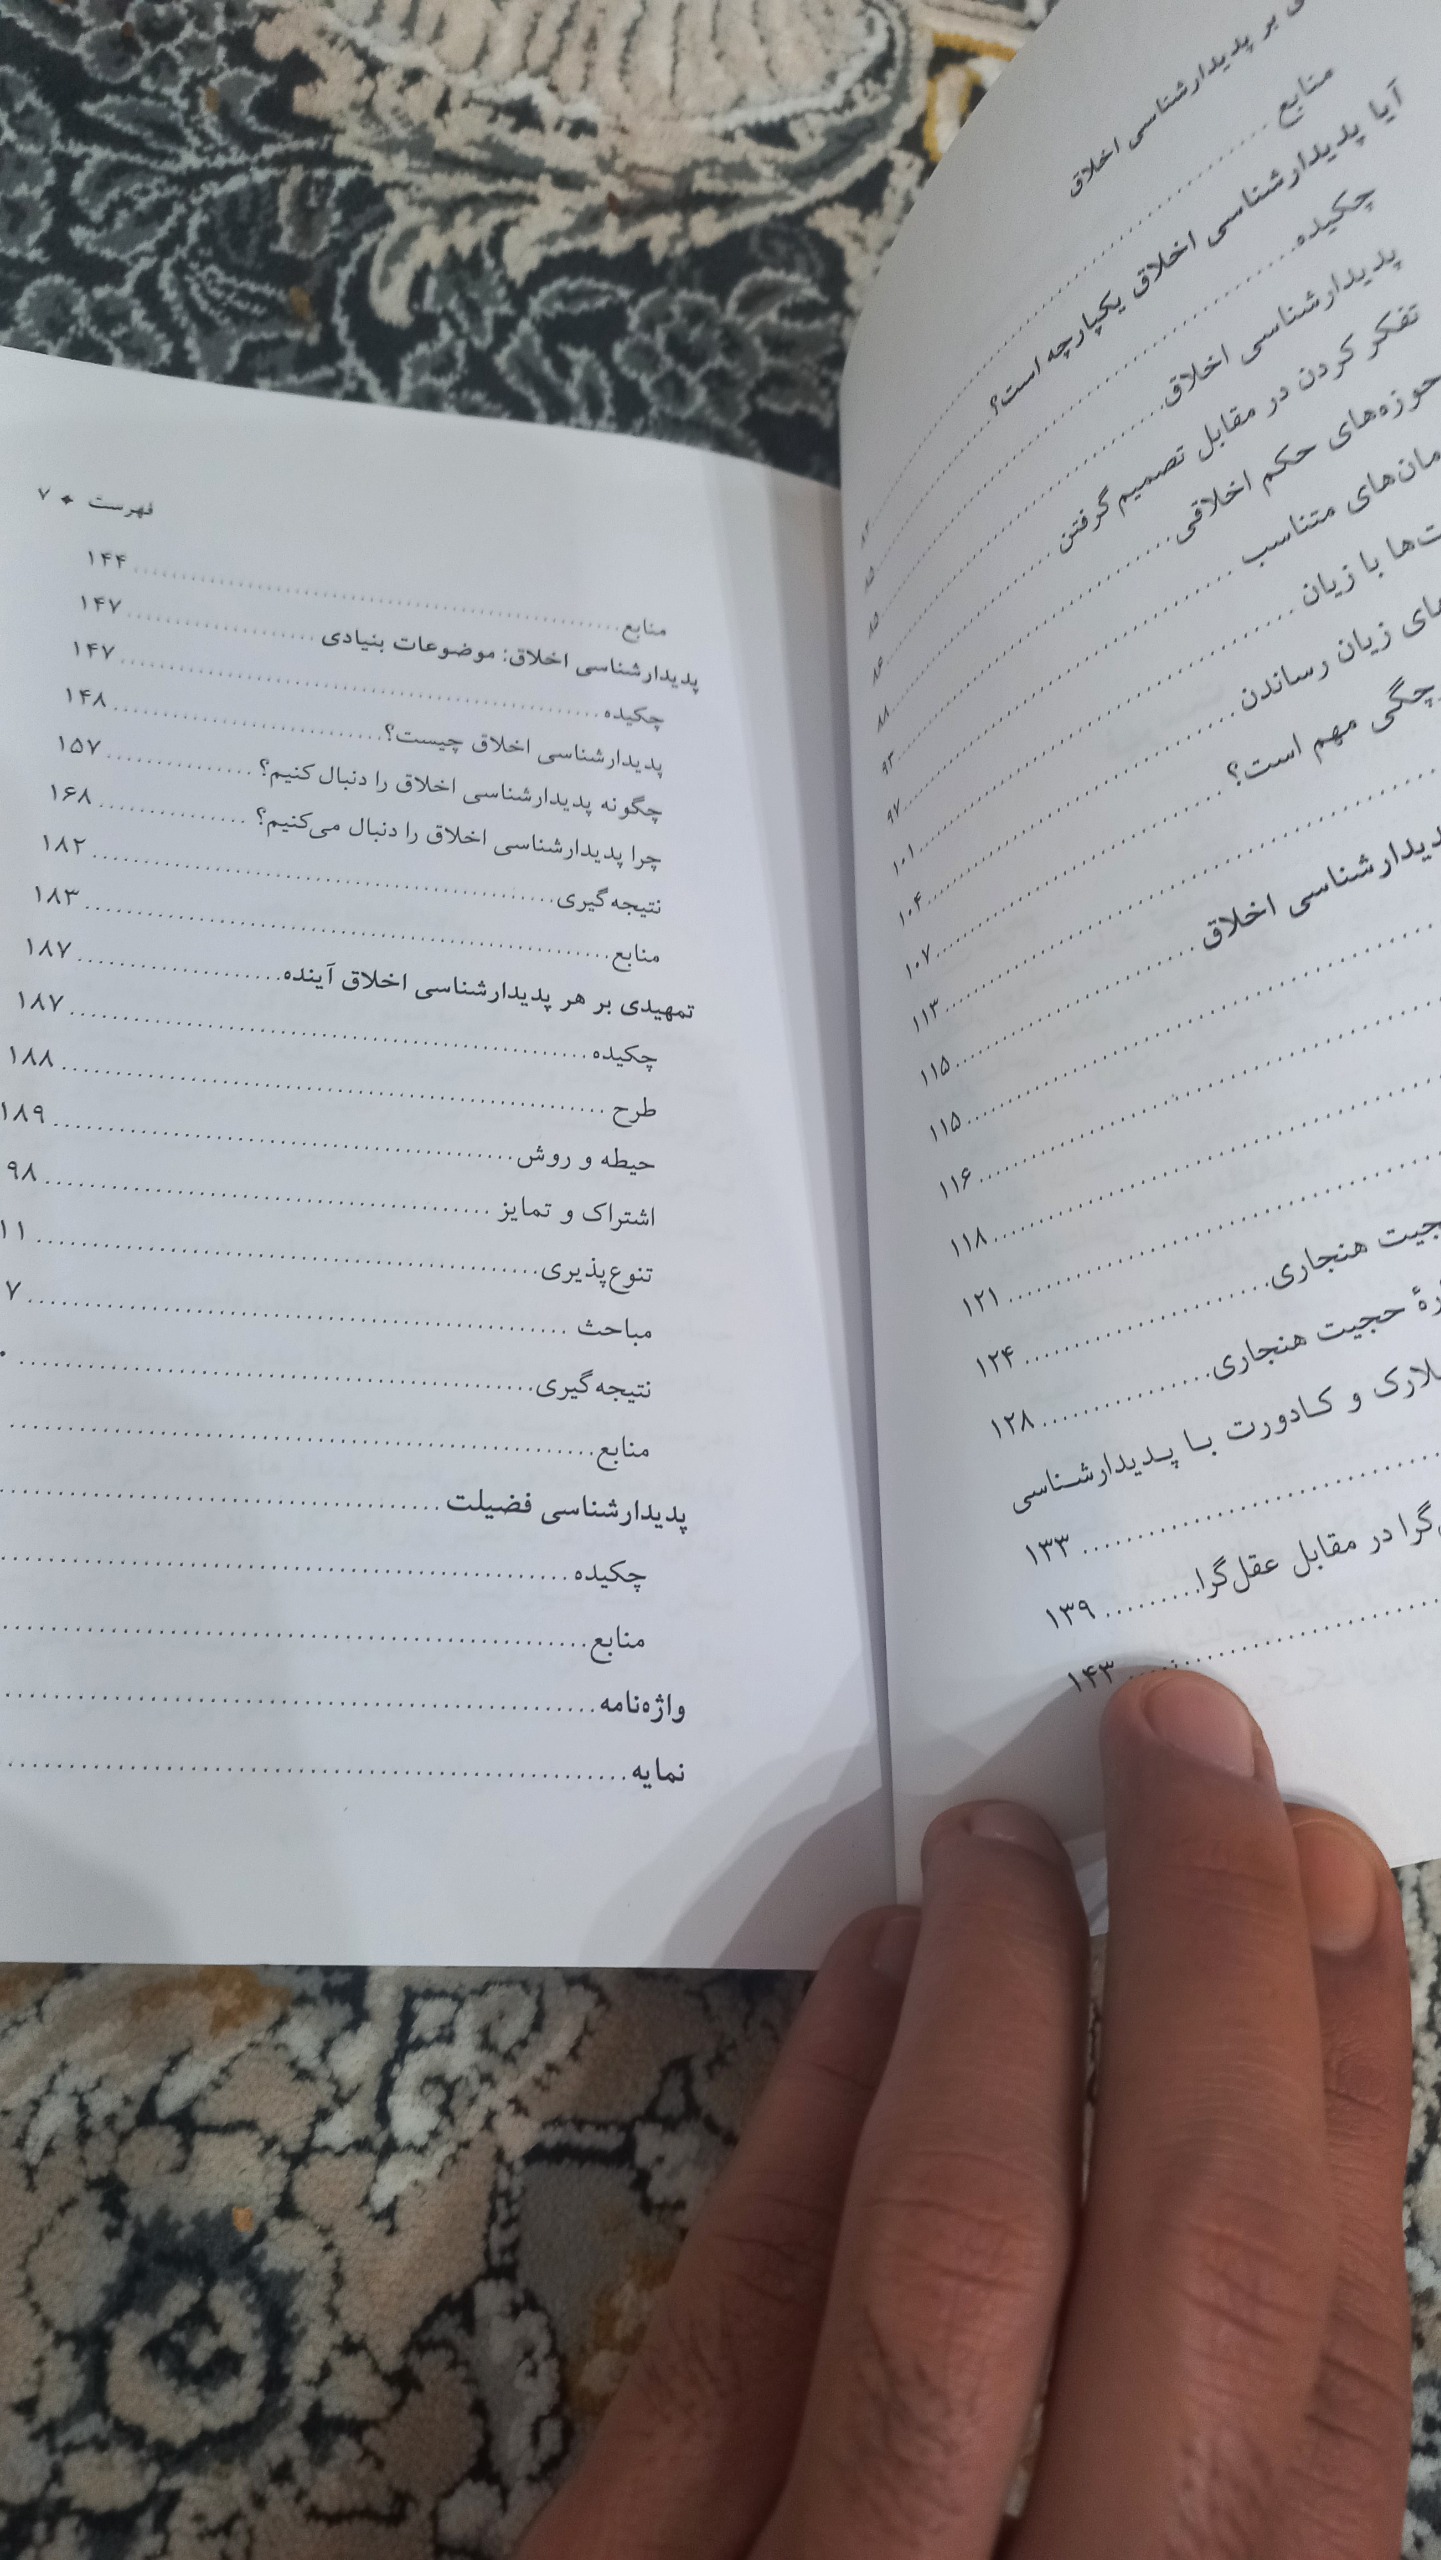 بر پدیدارشناسی اخلاق
منابع ........ ۸۲
آیا پدیدارشناسی اخلاق یکپارچه است؟ ........ ۸۵
چکیده ........ ۸۵
پدیدارشناسی اخلاق ........ ۸۶
تفکر کردن در مقابل تصمیم گرفتن ........ ۸۸
حوزه‌های حکم اخلاقی ........ ۹۳
متناسب ........ ۹۷
با زیان ........ ۱۰۱
زیان رساندن ........ ۱۰۴
مهم است؟ ........ ۱۰۷
........ ۱۱۳
پدیدارشناسی اخلاق ........ ۱۱۵
........ ۱۱۵
........ ۱۱۶
........ ۱۱۸
........ ۱۲۱
حجیت هنجاری ........ ۱۲۴
حجیت هنجاری ........ ۱۲۸
و کادورت با پدیدارشناسی
........ ۱۳۳
در مقابل عقل‌گرا ........ ۱۳۹
........ ۱۴۳
فهرست ✦ ۷
منابع ........ ۱۴۴
پدیدارشناسی اخلاق: موضوعات بنیادی ........ ۱۴۷
چکیده ........ ۱۴۷
پدیدارشناسی اخلاق چیست؟ ........ ۱۴۸
چگونه پدیدارشناسی اخلاق را دنبال کنیم؟ ........ ۱۵۷
چرا پدیدارشناسی اخلاق را دنبال می‌کنیم؟ ........ ۱۶۸
نتیجه‌گیری ........ ۱۸۲
منابع ........ ۱۸۳
تمهیدی بر هر پدیدارشناسی اخلاق آینده ........ ۱۸۷
چکیده ........ ۱۸۷
طرح ........ ۱۸۸
حیطه و روش ........ ۱۸۹
اشتراک و تمایز ........ ۹۸
تنوع‌پذیری ........ ۱۱
مباحث ........ ۷
نتیجه‌گیری ........ ۰
منابع ........
پدیدارشناسی فضیلت ........
چکیده ........
منابع ........
واژه‌نامه ........
نمایه ........